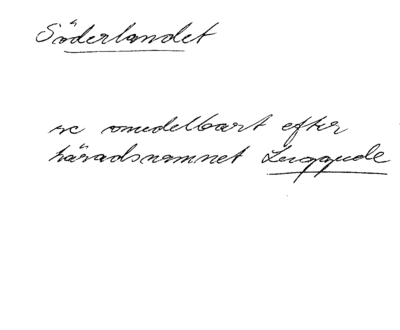 Söderlandet
se omedelbart efter
häradsnamnet Luggude